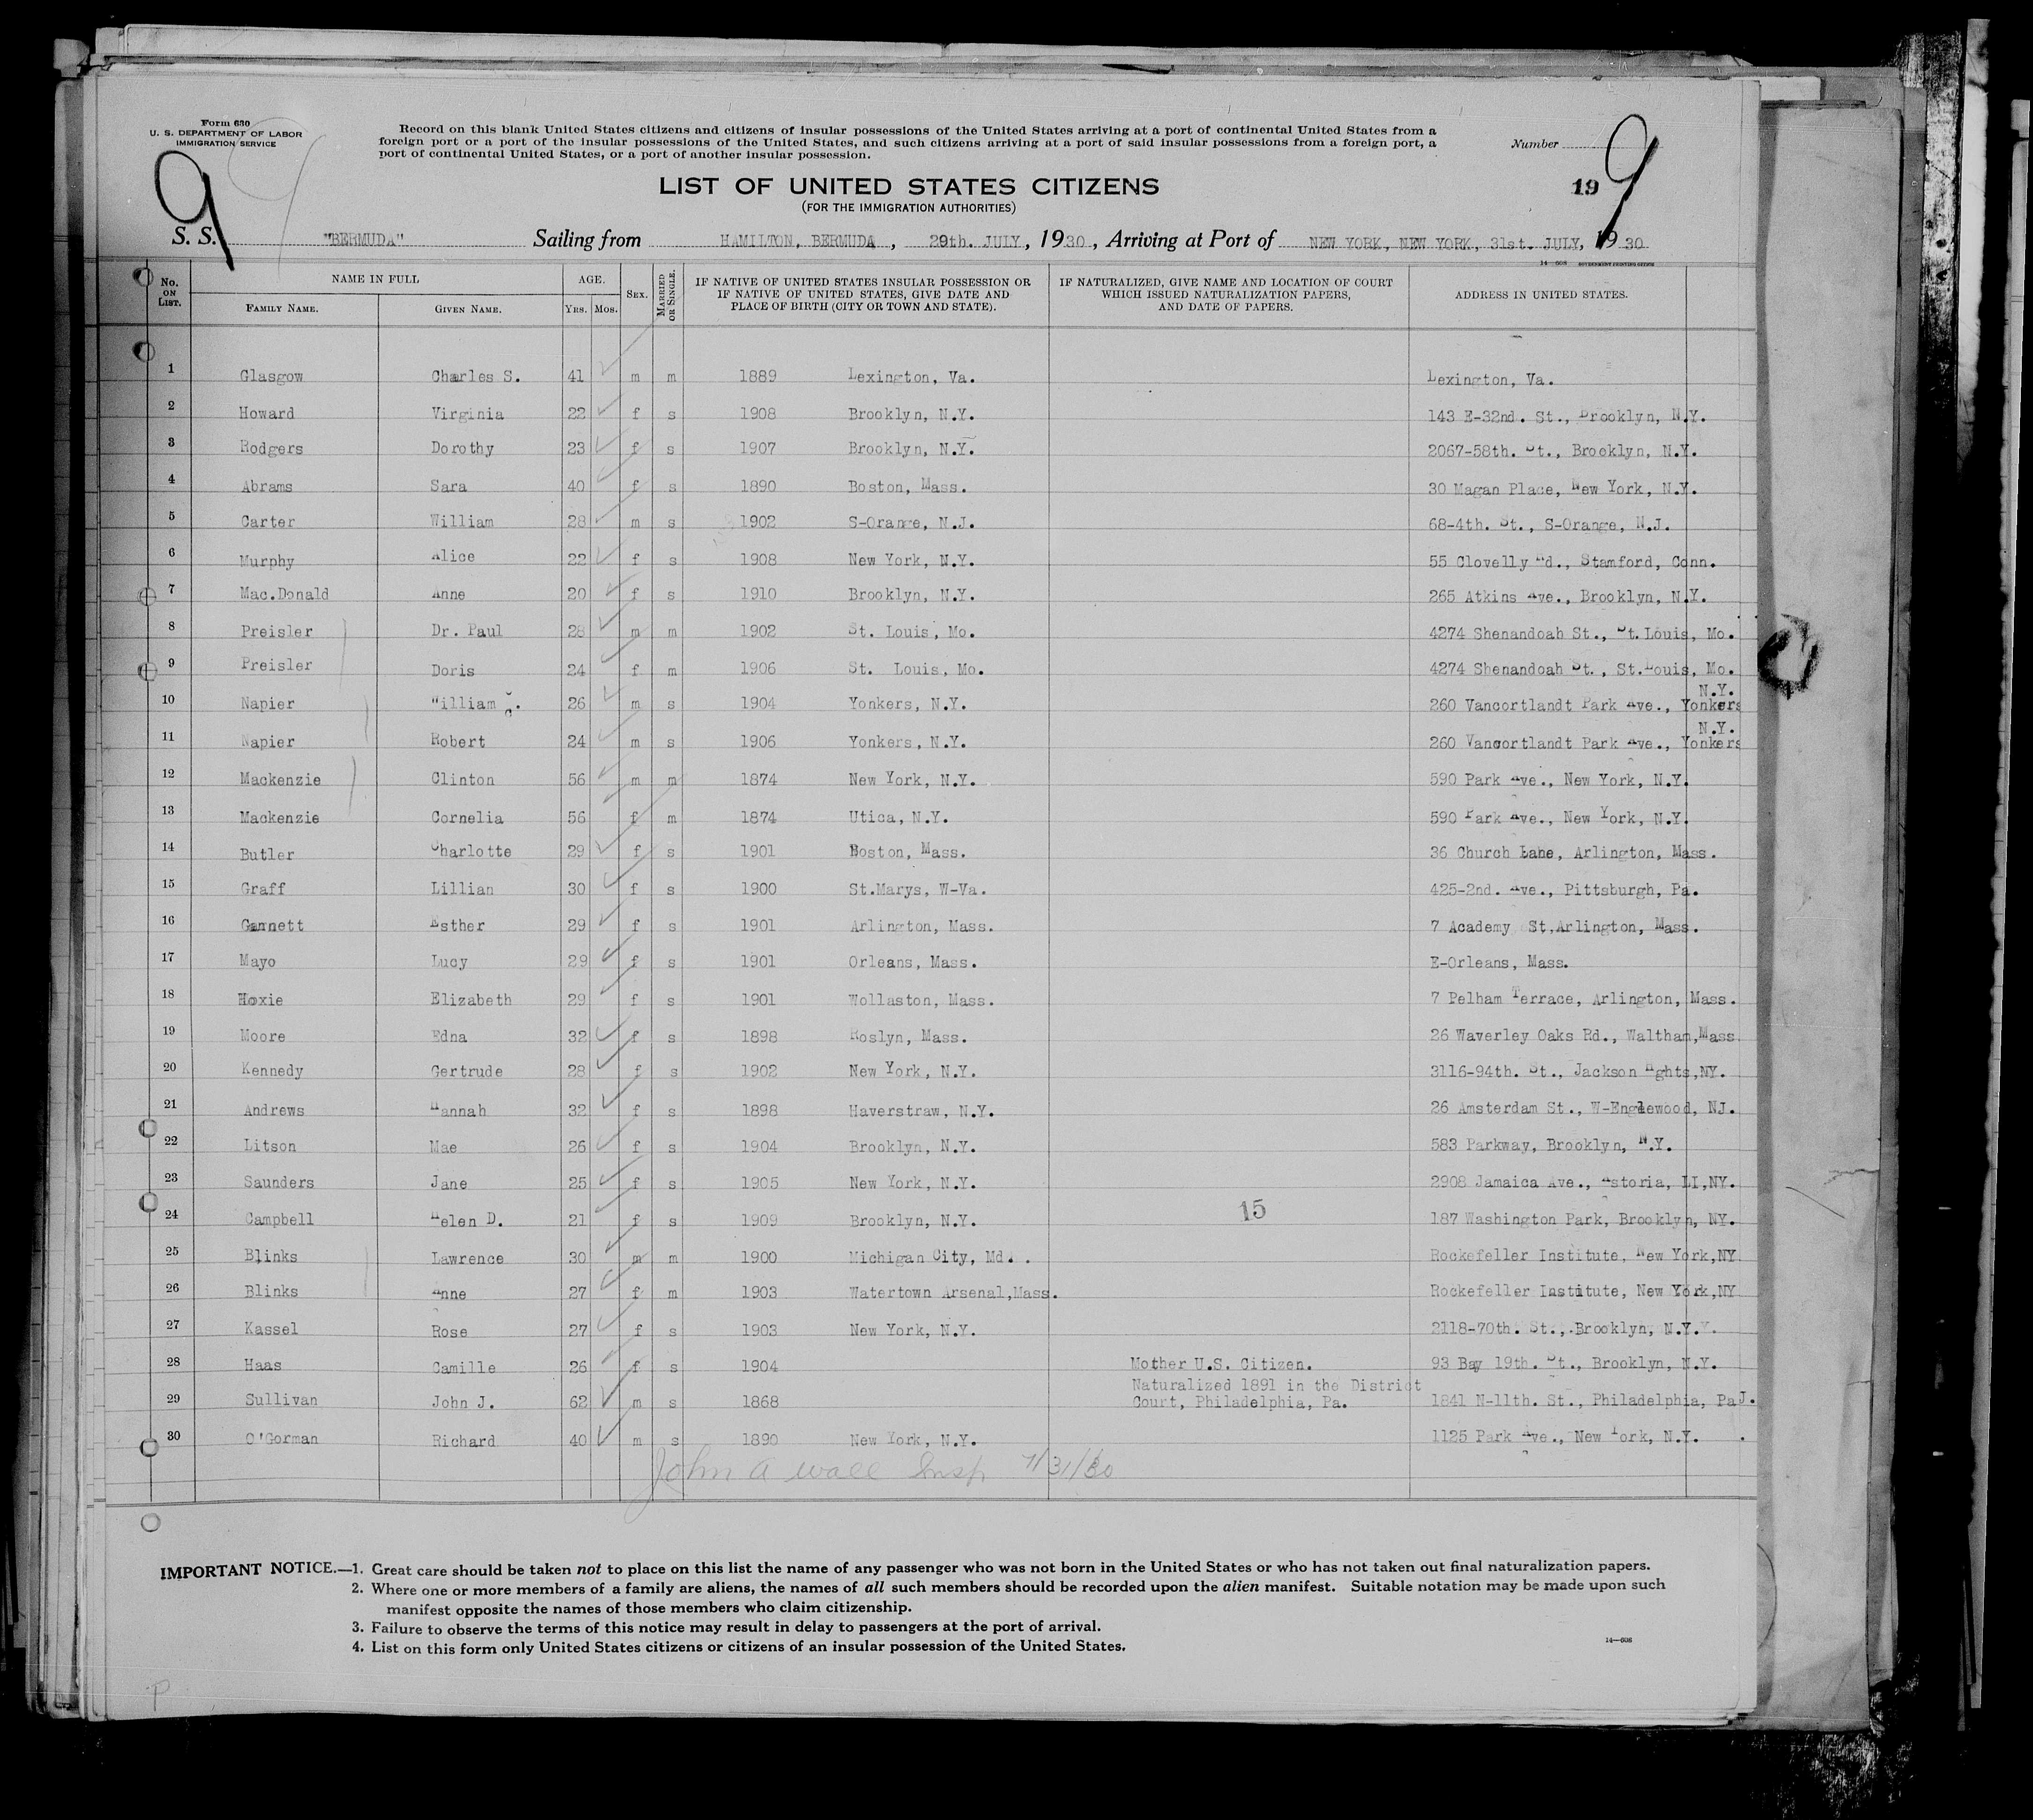 Form 630
U. S. DEPARTMENT OF LABOR
IMMIGRATION SERVICE
Record on this blank United States citizens and citizens of insular possessions of the United States arriving at a port of continental United States from a
foreign port or a port of the insular possessions of the United States, and such citizens arriving at a port of said insular possessions from a foreign port, a
port of continental United States, or a port of another insular possession.
Number
9
9
LIST OF UNITED STATES CITIZENS
19
(FOR THE IMMIGRATION AUTHORITIES)
S. S. "BERMUDA" Sailing from HAMILTON, BERMUDA, 29th. JULY, 1930, Arriving at Port of NEW YORK, NEW YORK, 31st. JULY, 1930
14—608 GOVERNMENT PRINTING OFFICE
No. ON LIST. NAME IN FULL AGE. SEX. MARRIED OR SINGLE. IF NATIVE OF UNITED STATES INSULAR POSSESSION OR IF NATIVE OF UNITED STATES, GIVE DATE AND PLACE OF BIRTH (CITY OR TOWN AND STATE). IF NATURALIZED, GIVE NAME AND LOCATION OF COURT WHICH ISSUED NATURALIZATION PAPERS, AND DATE OF PAPERS. ADDRESS IN UNITED STATES.
FAMILY NAME. GIVEN NAME. YRS. MOS.
1 Glasgow Charles S. 41 m m 1889 Lexington, Va. Lexington, Va.
2 Howard Virginia 22 f s 1908 Brooklyn, N.Y. 143 E-32nd. St., Brooklyn, N.Y.
3 Rodgers Dorothy 23 f s 1907 Brooklyn, N.Y. 2067-58th. St., Brooklyn, N.Y.
4 Abrams Sara 40 f s 1890 Boston, Mass. 30 Magan Place, New York, N.Y.
5 Carter William 28 m s 1902 S-Orange, N.J. 68-4th. St., S-Orange, N.J.
6 Murphy Alice 22 f s 1908 New York, N.Y. 55 Clovelly Rd., Stamford, Conn.
7 Mac.Donald Anne 20 f s 1910 Brooklyn, N.Y. 265 Atkins Ave., Brooklyn, N.Y.
8 Preisler Dr. Paul 28 m m 1902 St. Louis, Mo. 4274 Shenandoah St., St.Louis, Mo.
9 Preisler Doris 24 f m 1906 St. Louis, Mo. 4274 Shenandoah St., St.Louis, Mo.
10 Napier William 26 m s 1904 Yonkers, N.Y. 260 Vancortlandt Park Ave., Yonkers N.Y.
11 Napier Robert 24 m s 1906 Yonkers, N.Y. 260 Vancortlandt Park Ave., Yonkers N.Y.
12 Mackenzie Clinton 56 m m 1874 New York, N.Y. 590 Park Ave., New York, N.Y.
13 Mackenzie Cornelia 56 f m 1874 Utica, N.Y. 590 Park Ave., New York, N.Y.
14 Butler Charlotte 29 f s 1901 Boston, Mass. 36 Church Lane, Arlington, Mass.
15 Graff Lillian 30 f s 1900 St.Marys, W-Va. 425-2nd. Ave., Pittsburgh, Pa.
16 Gannett Esther 29 f s 1901 Arlington, Mass. 7 Academy St,Arlington, Mass.
17 Mayo Lucy 29 f s 1901 Orleans, Mass. E-Orleans, Mass.
18 Hoxie Elizabeth 29 f s 1901 Wollaston, Mass. 7 Pelham Terrace, Arlington, Mass.
19 Moore Edna 32 f s 1898 Roslyn, Mass. 26 Waverley Oaks Rd., Waltham,Mass.
20 Kennedy Gertrude 28 f s 1902 New York, N.Y. 3116-94th. St., Jackson Hghts,NY.
21 Andrews Hannah 32 f s 1898 Haverstraw, N.Y. 26 Amsterdam St., W-Englewood, NJ.
22 Litson Mae 26 f s 1904 Brooklyn, N.Y. 583 Parkway, Brooklyn, N.Y.
23 Saunders Jane 25 f s 1905 New York, N.Y. 2908 Jamaica Ave., Astoria, LI,NY.
24 Campbell Helen D. 21 f s 1909 Brooklyn, N.Y. 15 187 Washington Park, Brooklyn, NY.
25 Blinks Lawrence 30 m m 1900 Michigan City, Md. . Rockefeller Institute, New York,NY
26 Blinks Anne 27 f m 1903 Watertown Arsenal,Mass. Rockefeller Institute, New York,NY
27 Kassel Rose 27 f s 1903 New York, N.Y. 2118-70th. St., Brooklyn, N.Y.
28 Haas Camille 26 f s 1904 Mother U.S. Citizen. 93 Bay 19th. St., Brooklyn, N.Y.
29 Sullivan John J. 62 m s 1868 Naturalized 1891 in the District Court, Philadelphia, Pa. 1841 N-11th. St., Philadelphia, Pa.
30 O'Gorman Richard 40 m s 1890 New York, N.Y. 1125 Park Ave., New York, N.Y.
John A Wall Insp 7/31/30
IMPORTANT NOTICE.—1. Great care should be taken not to place on this list the name of any passenger who was not born in the United States or who has not taken out final naturalization papers.
2. Where one or more members of a family are aliens, the names of all such members should be recorded upon the alien manifest. Suitable notation may be made upon such
manifest opposite the names of those members who claim citizenship.
3. Failure to observe the terms of this notice may result in delay to passengers at the port of arrival.
4. List on this form only United States citizens or citizens of an insular possession of the United States.
14—608
P